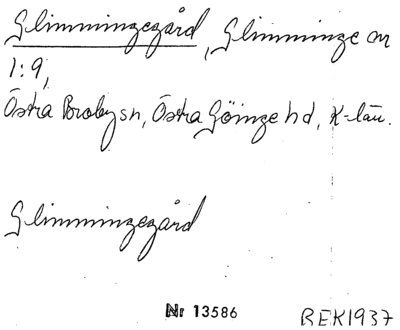 Glimmingegård, Glimminge on
1:9,
Östra Broby sn, Östra Göinge hd, K-län.
Glimmingegård
Nr 13586 BEK1937